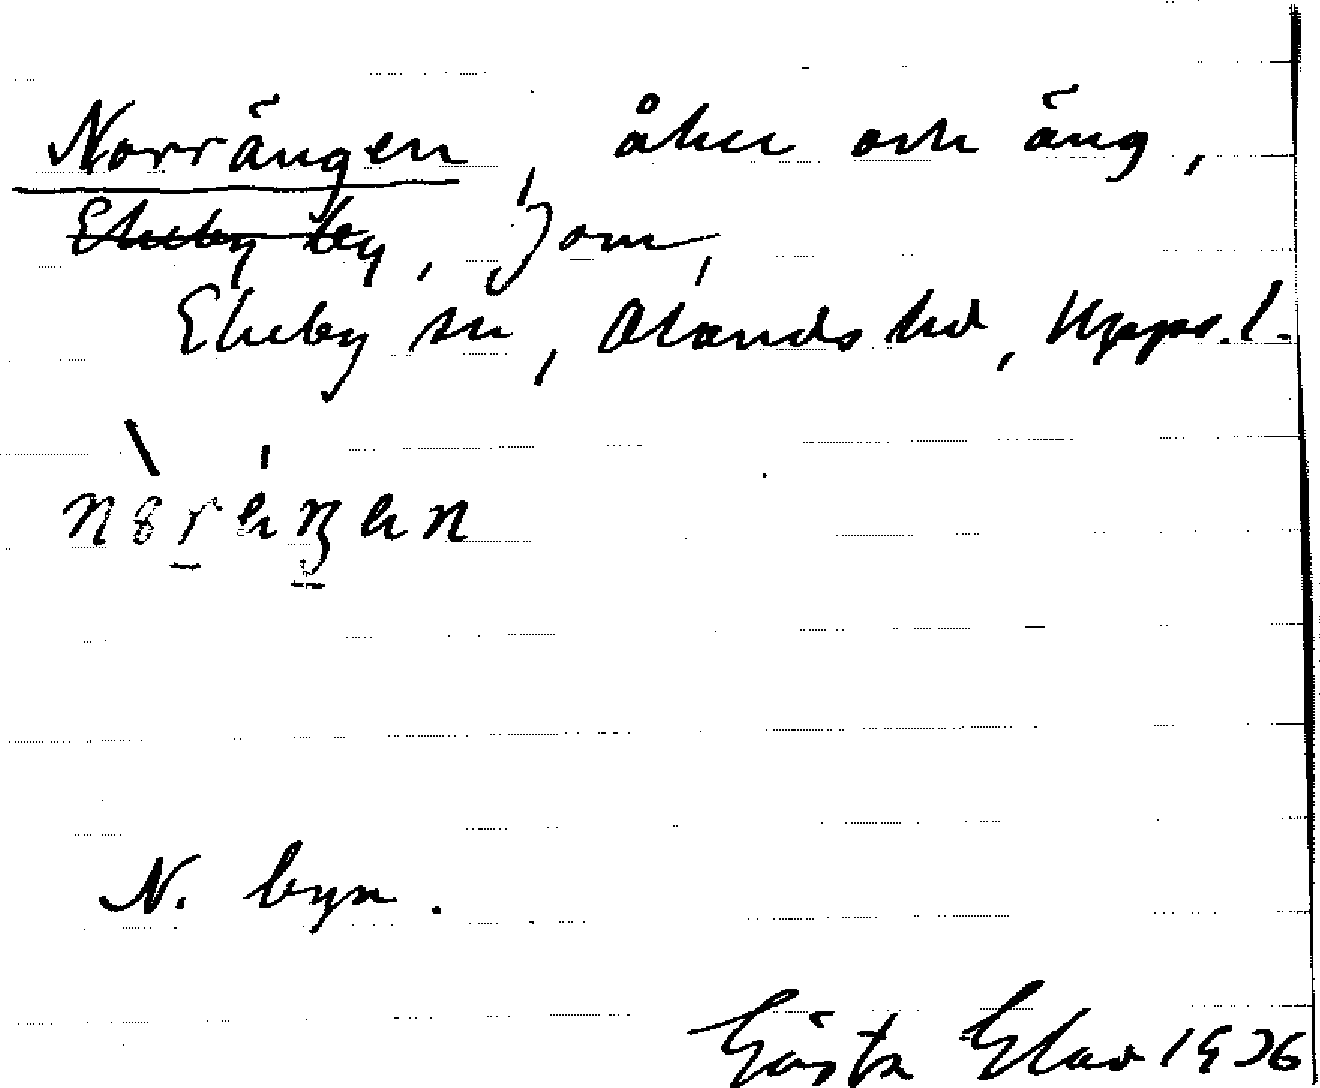 Norrängen, åker och äng,
Ekeby by, Jom,
Ekeby sn, Olands hd, Upps. l.
N. byn.
Gösta Elav 1936